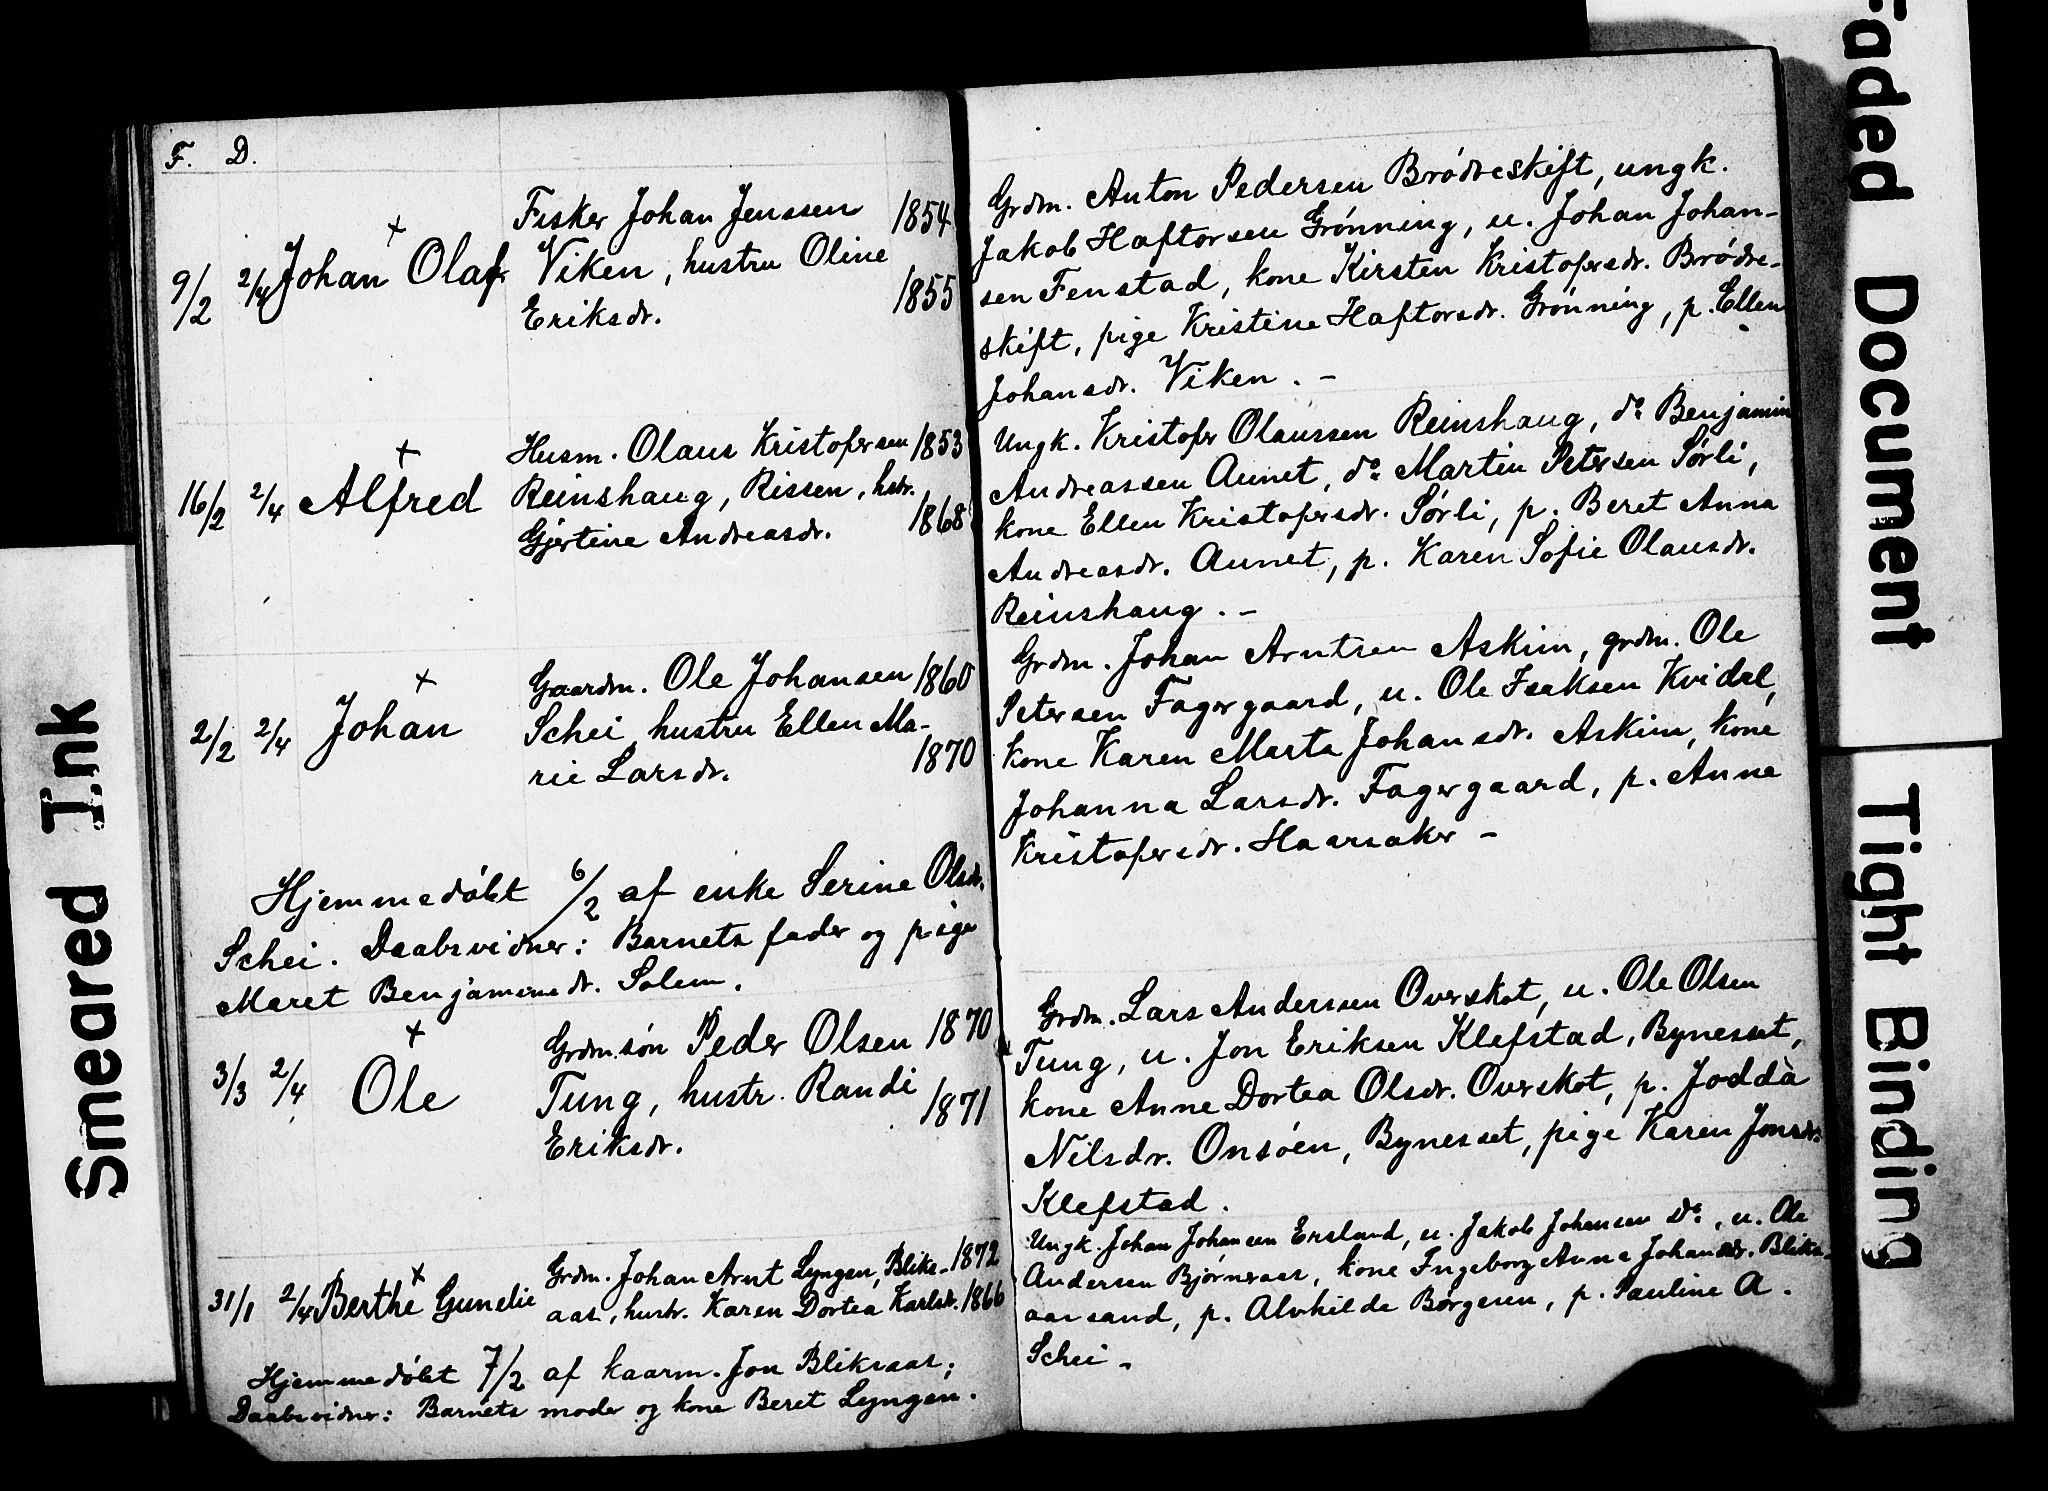 F. D.
9/2 2/4 Johan Olaf
Fisker Johan Jenssen 1854
Viken, hustru Oline
Eriksdr. 1855
Grdm. Anton Pedersen Brødreskift, ungk.
Jakob Haftorsen Grønning, u. Johan Johan-
sen Fenstad, kone Kirsten Kristofersdr. Brødre-
skift, pige Kristine Haftorsdr. Grønning, p. Ellen
Johansdr. Viken. -
16/2 2/4 Alfred
Husm. Olaus Kristofersen 1853
Reinshaug, Rissen, hstr.
Gjertine Andreasdr. 1868
Ungk. Kristofer Olaussen Reinshaug, do Benjamin
Andreassen Aunet, do Martin Petersen Sørli,
kone Ellen Kristofersdr. Sørli, p. Beret Anna
Andreasdr. Aunet, p. Karen Sofie Olausdr.
Reinshaug. -
2/2 2/4 Johan
Gaardm. Ole Johansen 1860
Schei, hustru Ellen Ma-
rie Larsdr. 1870
Grdm. Johan Arntsen Askim, grdm. Ole
Petersen Fagergaard, u. Ole Isaksen Kvidal,
kone Karen Marta Johansdr. Askim, kone
Johanna Larsdr. Fagergaard, p. Anne
Kristofersdr. Haarsaker -
Hjemmedøbt 6/2 af enke Serine Olsdr.
Schei. Daabsvidner: Barnets fader og pige
Maret Benjaminsdr. Solem.
3/3 2/4 Ole
Grdm.søn Peder Olsen 1870
Tung, hustr. Randi
Eriksdr. 1871
Grdm. Lars Anderssen Overskot, u. Ole Olsen
Tung, u. Jon Eriksen Klefstad, Bynesset,
kone Anne Dortea Olsdr. Overskot, p. Jodda
Nilsdr. Onsøen, Bynesset, pige Karen Jonsdr.
Klefstad.
31/1 2/4 Berthe Gunelie
Grdm. Johan Arnt Lyngen, Bliks- 1872
aas, hustr. Karen Dortea Karlsdr. 1866
Ungk. Johan Johansen Ersland, u. Jakob Johansen Do, u. Ole
Andersen Bjørneraas, kone Ingeborg Anna Johansdr. Bliks-
aassand, p. Alvhilde Børgesen, p. Pauline A.
Schei -
Hjemmedøbt 7/2 af kaarm. Jon Bliksaas;
Daabsvidner: Barnets moder og kone Beret Lyngen.
Smeared Ink
Faded Document
Tight Binding